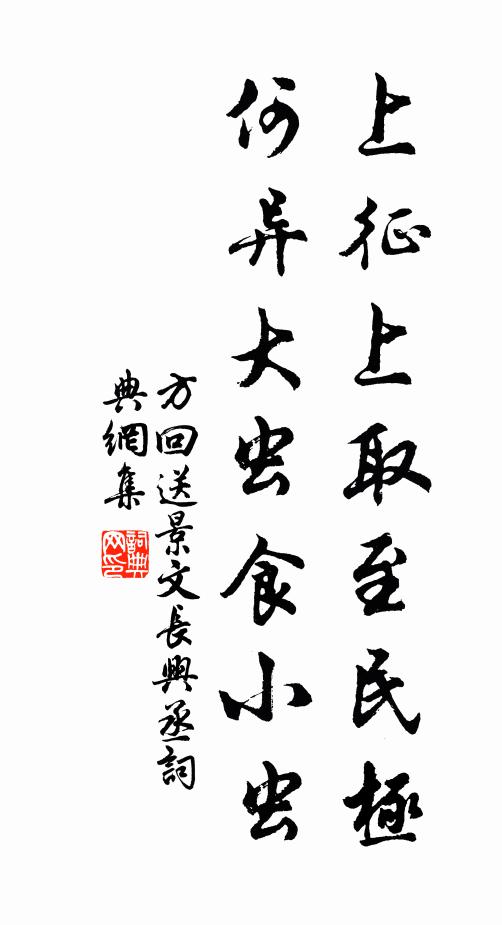 上征上取至民極
何异大虫食小虫
方回送景文長興丞詞
典網集
詞典网印